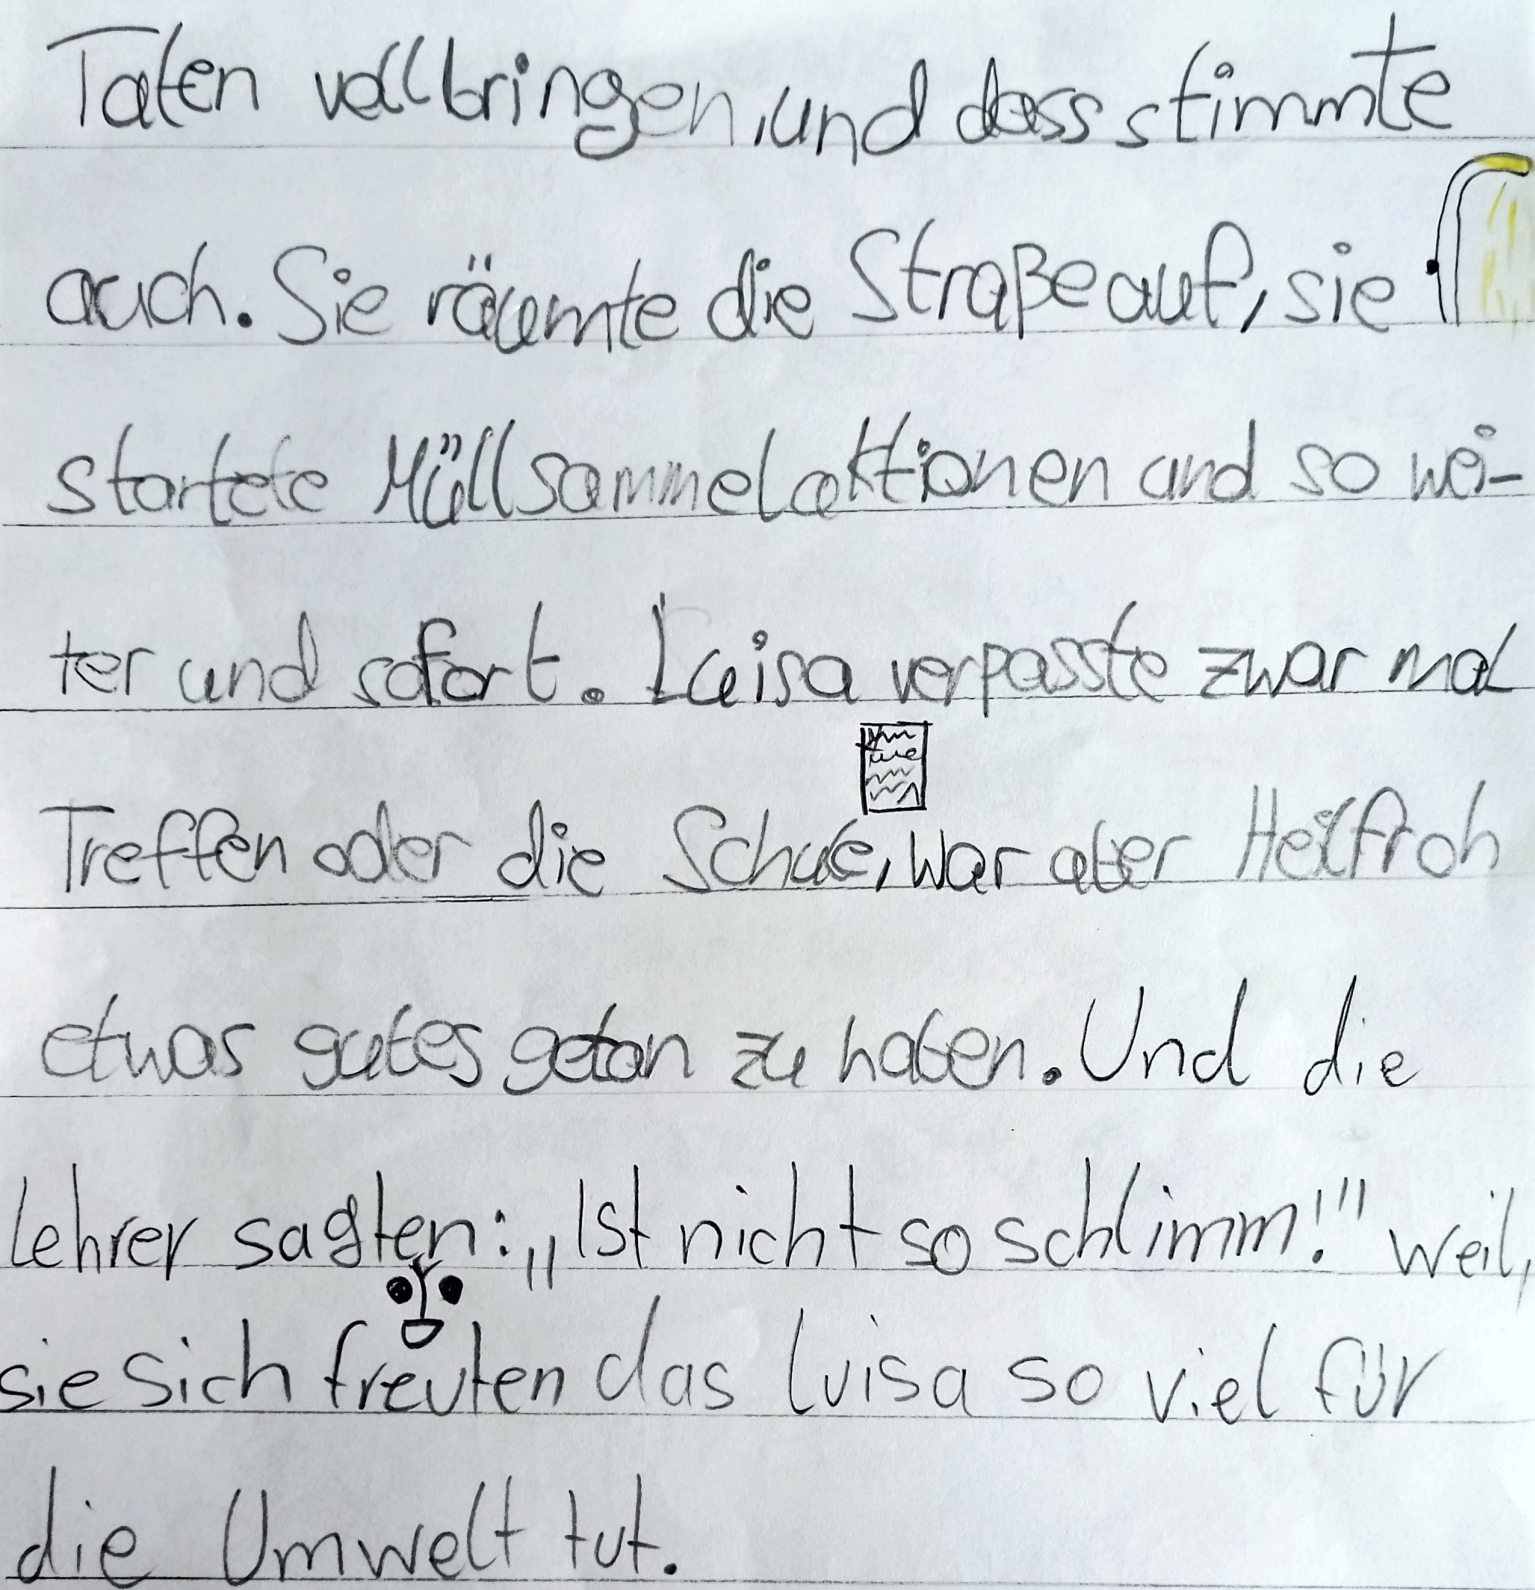 Taten vollbringen, und dass stimmte
auch. Sie räumte die Straße auf, sie
startete Müllsammelaktionen und so wei-
ter und sofort. Luisa verpasste zwar mal
Treffen oder die Schule, war aber Heilfroh
etwas gutes getan zu haben. Und die
Lehrer sagten: „Ist nicht so schlimm!" weil,
sie sich freuten das Luisa so viel für
die Umwelt tut.